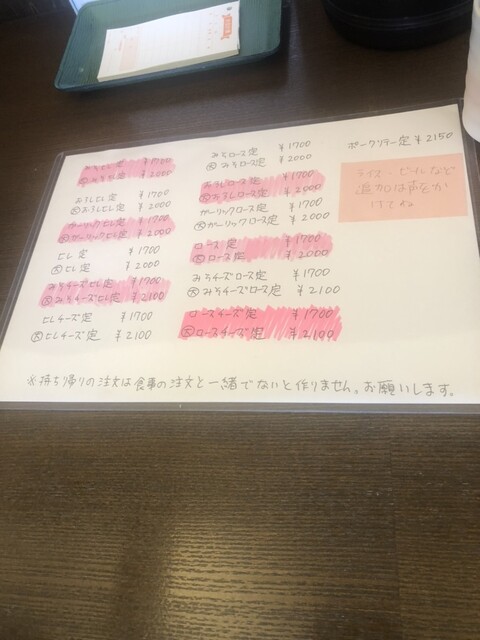 みそヒレ定 ¥1700
大 みそヒレ定 ¥2000
おろしヒレ定 ¥1700
大 おろしヒレ定 ¥2000
ガーリックヒレ定 ¥1700
大 ガーリックヒレ定 ¥2000
ヒレ定 ¥1700
大 ヒレ定 ¥2000
みそチーズヒレ定 ¥1700
大 みそチーズヒレ定 ¥2100
ヒレチーズ定 ¥1700
大 ヒレチーズ定 ¥2100
みそロース定 ¥1700
大 みそロース定 ¥2000
おろしロース定 ¥1700
大 おろしロース定 ¥2000
ガーリックロース定 ¥1700
大 ガーリックロース定 ¥2000
ロース定 ¥1700
大 ロース定 ¥2000
みそチーズロース定 ¥1700
大 みそチーズロース定 ¥2100
ロースチーズ定 ¥1700
大 ロースチーズ定 ¥2100
ポークソテー定 ¥2150
ライス、ビールなど
追加は声をか
けてね
※持ち帰りの注文は食事の注文と一緒でないと作りません。お願いします。